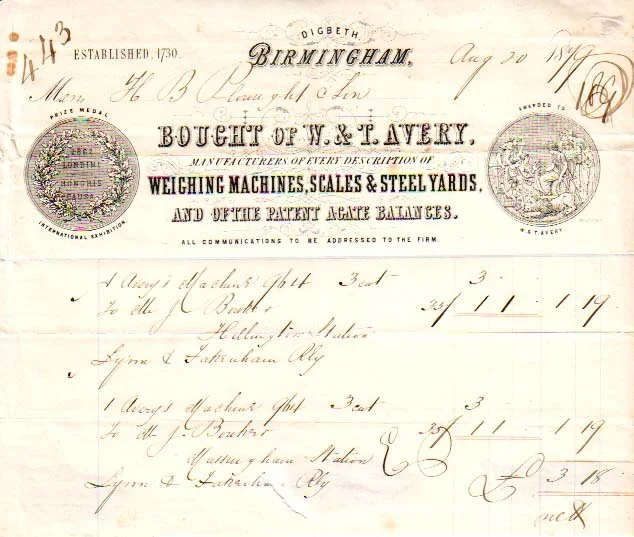 443
DIGBETH,
ESTABLISHED, 1730.
BIRMINGHAM,
Aug 20 1879
Messrs H B Plowright & Son
PRIZE MEDAL
1862
LONDINI
HONORIS
CAUSA
INTERNATIONAL EXHIBITION.
BOUGHT OF W. & T. AVERY,
MANUFACTURERS OF EVERY DESCRIPTION OF
WEIGHING MACHINES, SCALES & STEEL YARDS,
AND OF THE PATENT AGATE BALANCES.
ALL COMMUNICATIONS TO BE ADDRESSED TO THE FIRM.
AWARDED TO
W & T. AVERY.
1 Avery's Machine 3 cwt 3
To Mr J. Bowker 35/ 1 1 1 19
Hillington Station
Lynn & Fakenham Rly
1 Avery's Machine 3 cwt 3
To Mr J. Bowker 35/ 1 1 1 19
Massingham Station
Lynn & Fakenham Rly
£ 3 18
nett